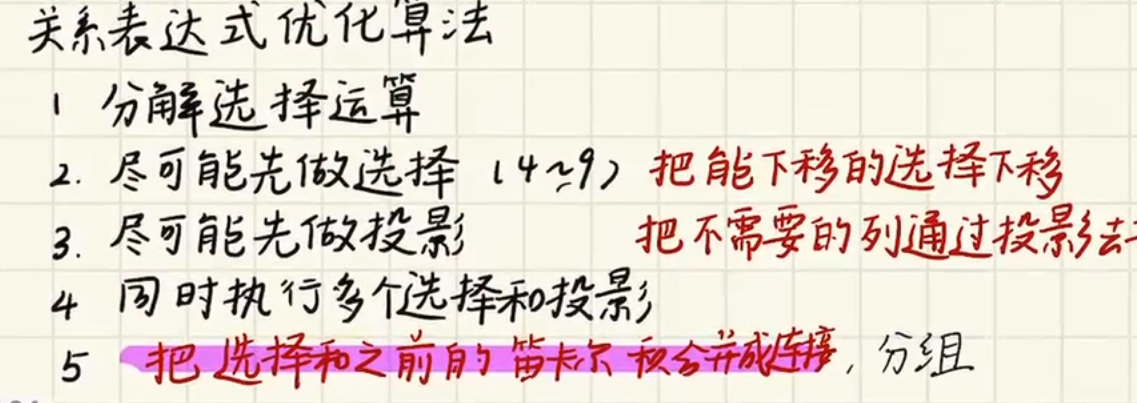 关系表达式优化算法
1 分解选择运算
2. 尽可能先做选择 (4~9) 把能下移的选择下移
3. 尽可能先做投影 把不需要的列通过投影去
4 同时执行多个选择和投影
5 把选择和之前的笛卡尔积合并成连接, 分组